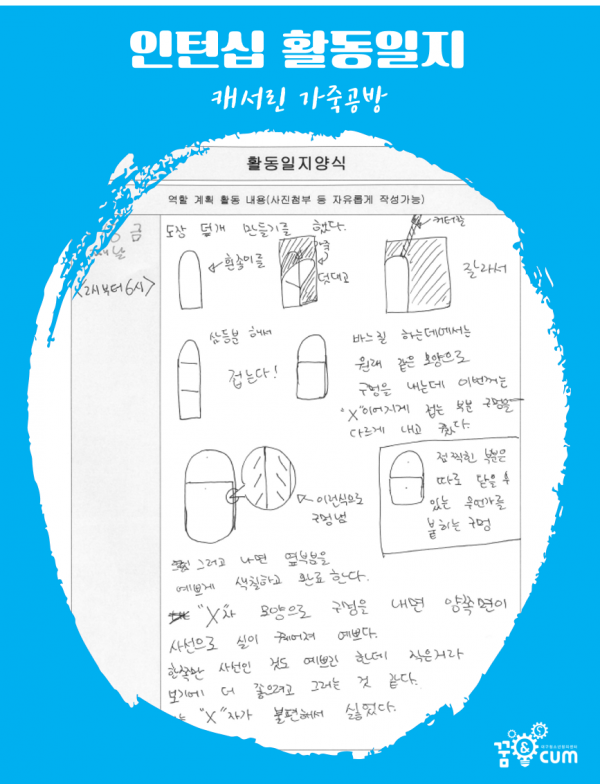 인턴십 활동일지
캐서린 가죽공방
활동일지양식
역할 계획 활동 내용(사진첨부 등 자유롭게 작성가능)
금
째날
<2시부터6시>
도장 덮개 만들기를 했다.
흰종이를
덧대고
커터칼
잘라서
삼등분 해서
접는다!
바느질 하는데에서는
원래 같은 모양으로
구멍을 내는데 이번꺼는
"X"이어지게 접는 부분 구멍을
다르게 내고 했다.
이런식으로
구멍냄
점 찍힌 부분은
따로 닫을 수
있는 우연가를
붙히는 구멍
그러고 나면 옆부분을
예쁘게 색칠하고 완료한다.
"X"자 모양으로 구멍을 내면 양쪽면이
사선으로 실이 꿰어져 예쁘다.
한쪽만 사선인 것도 예쁘긴 한데 작은거라
보기에 더 좋으려고 그러는 것 같다.
"X"자가 불편해서 싫었다.
꿈&cum